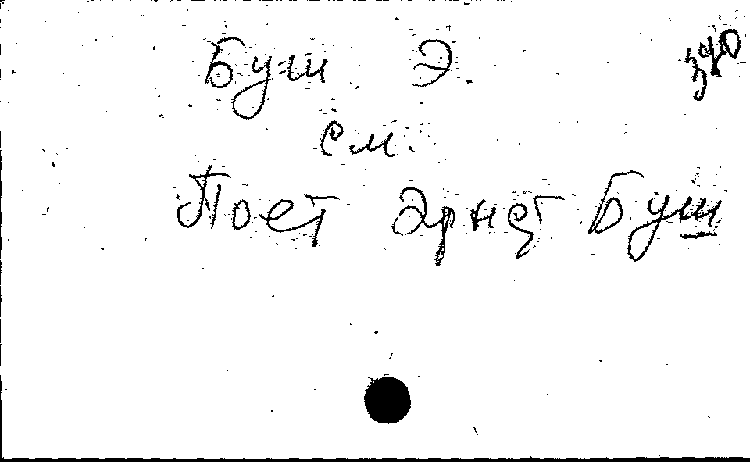 Буш Э.
см.
Поет Эрнст Буш